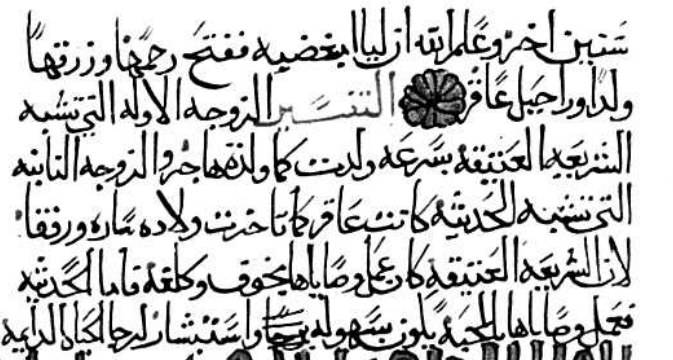 سنين اخر وعلم الله ان ليا ابغضيه ففتح رحمها ورزقها
ولدا وراحيل عاقر التفسير الزوجه الاوله التي تشبه
الشريعه العتيقه بسرعه ولدت كما ولدة هاجر والزوجه الثانيه
التي تشبه الحديثه كانت عاقر كما تاخرت ولاده ساره ورفقا
لان الشريعه العتيقه كان عمل وصاياها بخوف وكلفة فاما الحديثه
فعمل وصاياها بالمحبة يكون بسهوله واستبشار لرجا الحياه الدايمه